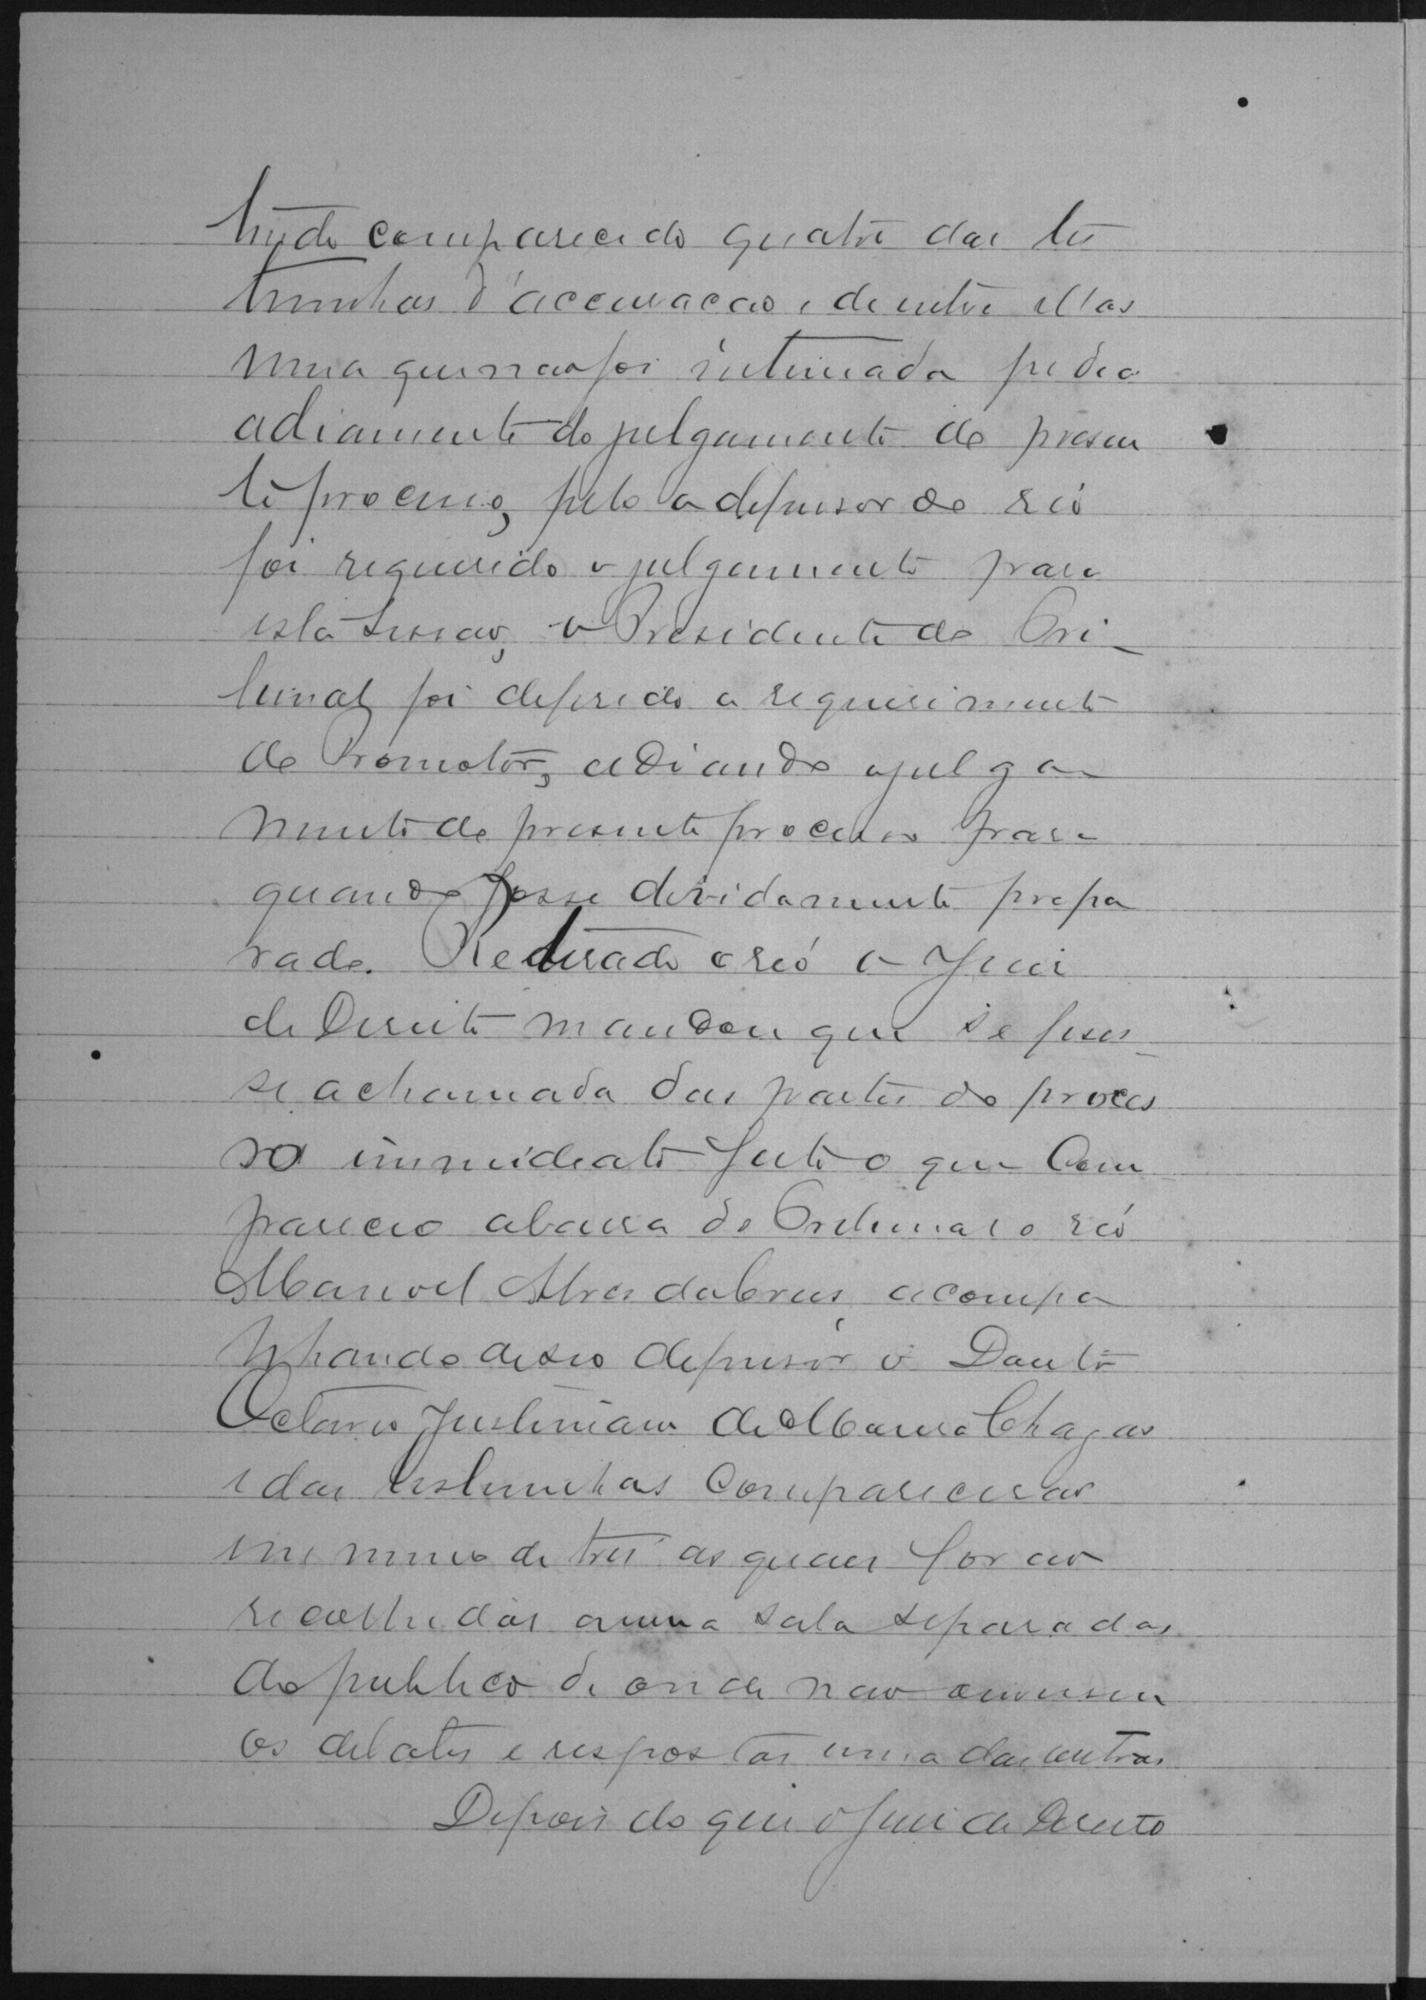 tendo comparecido quatro das tes
temunhas d'accusacao, e dentre ellas
uma que nao foi intimada pedio
adiamento do julgamento do presen
te processo, pelo o defensor do réo
foi requerido o julgamento para
esta sessao, o Presidente do Tri-
bunal foi deferido o requerimento
do Promotor, adiando o julga
mento do presente processo para
quando fosse devidamente prepa
rado. Retirado o réo o Juiz
de Direito mandou que se fizes-
se a chamada das partes do proces
so immidiato feito o que Com
pareceo a barra do Tribunal o réo
Manoel Alves da Cruz, acompa
nhando de seo defensor o Doutor
Octavio Justiniano de Chagas
e das testemunhas comparecerao
em numero de tres as quaes forao
recolhidas a uma sala separadas
do publico de onde nao ouvissem
os debates e respostas uma das outras
Depois do que o Juiz de Direito